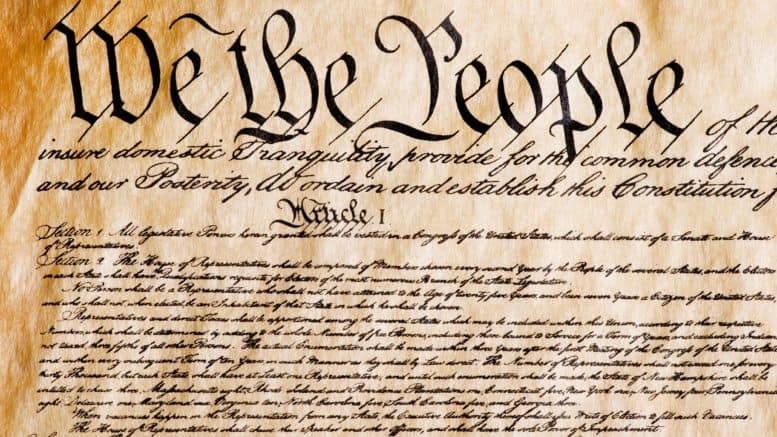 We the People of
insure domestic Tranquility, provide for the common defence
and our Posterity, do ordain and establish this Constitution f
Article I
Section 1 All legislative Powers herein granted shall be vested in a Congress of the United States, which shall consist of a Senate and House
of Representatives.
Section 2 The House of Representatives shall be composed of Members chosen every second Year by the People of the several States, and the
in each State shall have Qualifications requisite for of the most numerous Branch of the State Legislature.
No Person shall be a Representative who shall not have attained to the Age of twenty five Years, and been seven Years a Citizen of the United States
and who shall not, when elected, be an Inhabitant of that State in which he shall be chosen.
Representatives and direct Taxes shall be apportioned among the several States which may be included within this Union, according to their respective
Numbers, which shall be determined by adding to the whole Number of free Persons, including those bound to Service for a Term of Years, and excluding Indians
not taxed, three fifths of all other Persons. The actual Enumeration shall be made within three Years after the first Meeting of the Congress of the United States
and within every subsequent Term of ten Years, in such Manner as they shall by Law direct. The Number of Representatives shall not exceed one for every
thirty Thousand, but each State shall have at Least one Representative; and until such enumeration shall be made, the State of New Hampshire shall be
entitled to chuse three, Massachusetts eight, Rhode Island and Providence Plantations one, Connecticut five, New York six, New Jersey four, Pennsylvania
eight, Delaware one, Maryland six, Virginia ten, North Carolina five, South Carolina five, and Georgia three.
When vacancies happen in the Representation from any State, the Executive Authority thereof shall issue Writs of Election to fill such Vacancies.
The House of Representatives shall chuse their Speaker and other Officers; and shall have the sole Power of Impeachment.